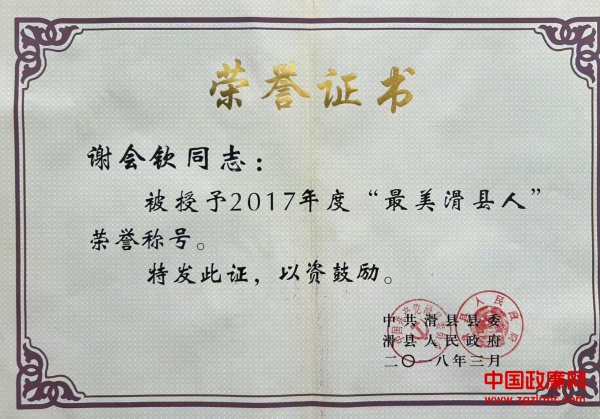 荣誉证书
谢会钦同志：
被授予2017年度“最美滑县人”
荣誉称号。
特发此证，以资鼓励。
中共滑县县委
滑县人民政府
二〇一八年三月
中国政廉网